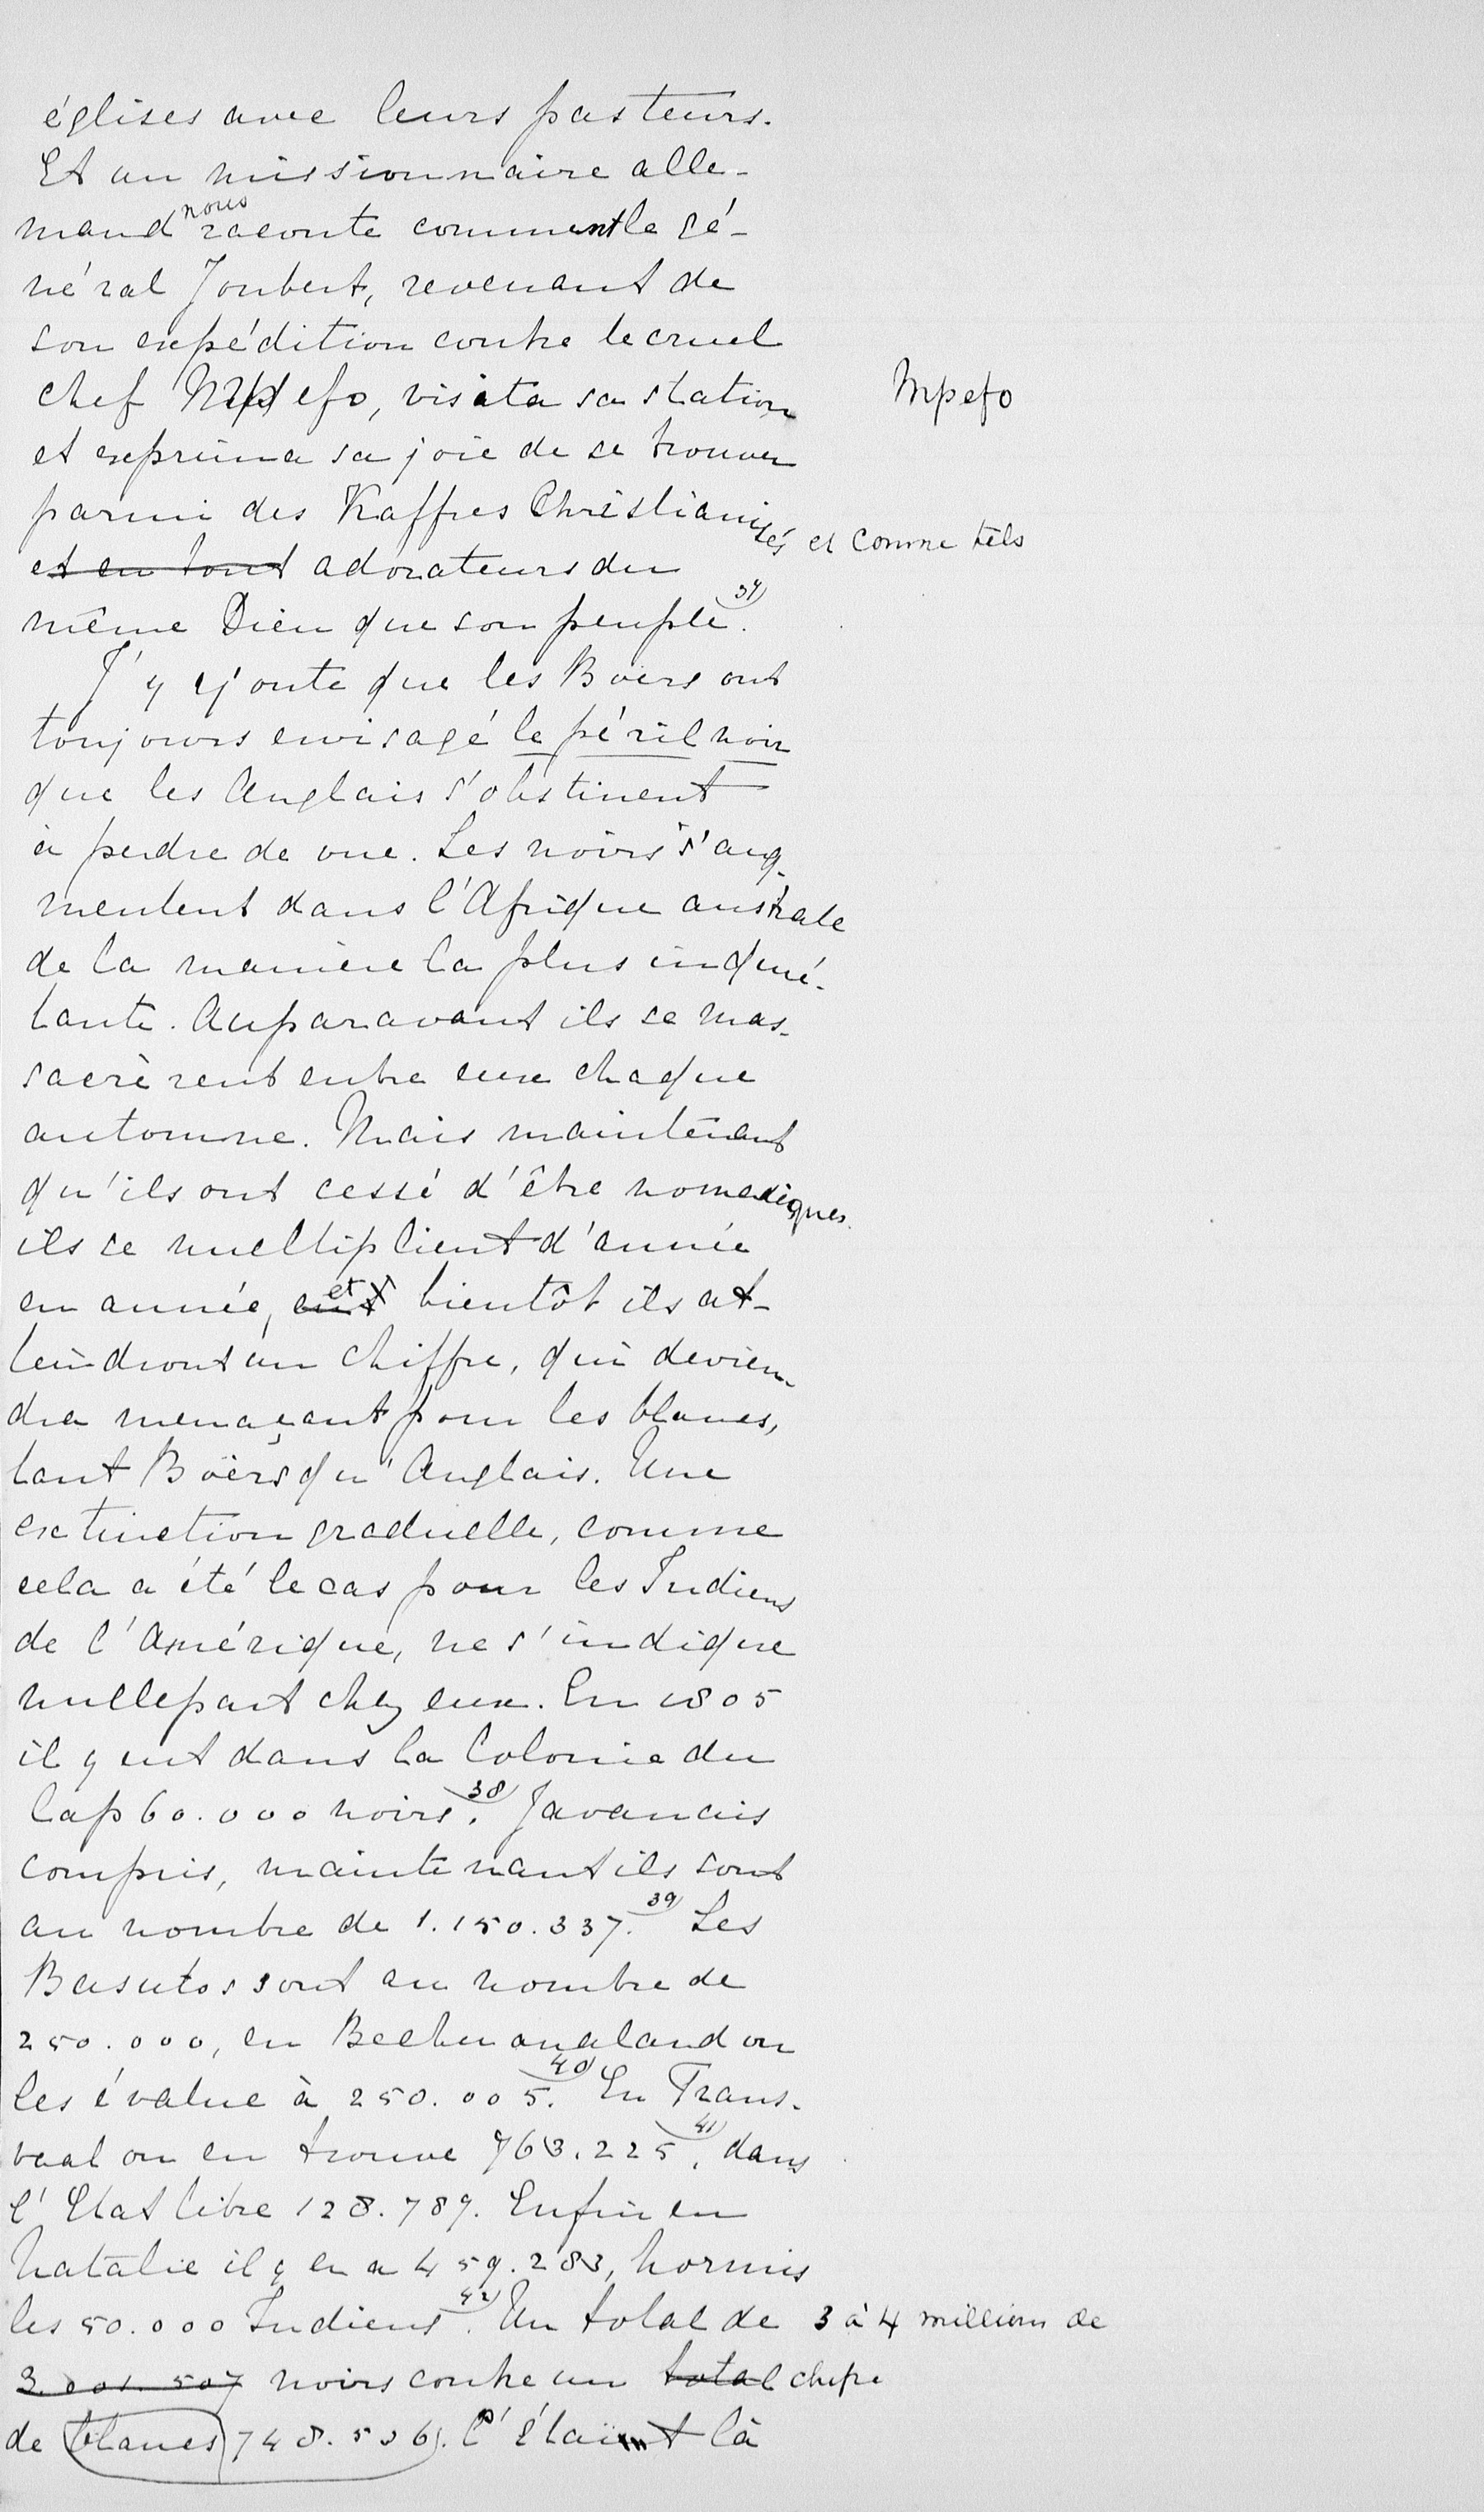 églises avec leurs pasteurs.
Et un missionnaire alle-
mand nous raconte comment le gé-
néral Joubert, revenant de
son expédition contre le cruel
chef Mpefo, visita sa station Mpefo
et exprima sa joie de se trouver
parmi des Kaffres Christianisés et comme tels
et en tout adorateurs du
même Dieu que son peuple 37).
J'y ajoute que les Boërs ont
toujours envisagé le péril noir
que les Anglais s'obstinent
à perdre de vue. Les noirs s'aug-
mentent dans l'Afrique australe
de la manière la plus inquié-
tante. Auparavant ils se mas-
sacrèrent entre eux chaque
automne. Mais maintenant
qu'ils ont cessé d'être nomadiques
ils se multiplient d'année
en année, et bientôt ils at-
teindront un chiffre, qui devien-
dra menaçant pour les blancs,
tant Boërs qu'Anglais. Une
extinction graduelle, comme
cela a été le cas pour les Indiens
de l'Amérique, ne s'indique
nullepart chez eux. En 1805
il y eut dans la Colonie du
Cap 60.000 noirs 38). Javanais
compris, maintenant ils sont
au nombre de 1.150.337. 39) Les
Basutos sont au nombre de
250.000, en Bechuanaland on
les évalue à 250.005. 40) En Trans-
vaal on en trouve 763.225 41), dans
l'Etat libre 128.789. Enfin en
Natalie il y en a 459.283, hormis
les 50.000 Indiens 42). Un total de 3 à 4 millions de
3.001.507 noirs contre un total chifre
de blancs 748.536). C'étaint là